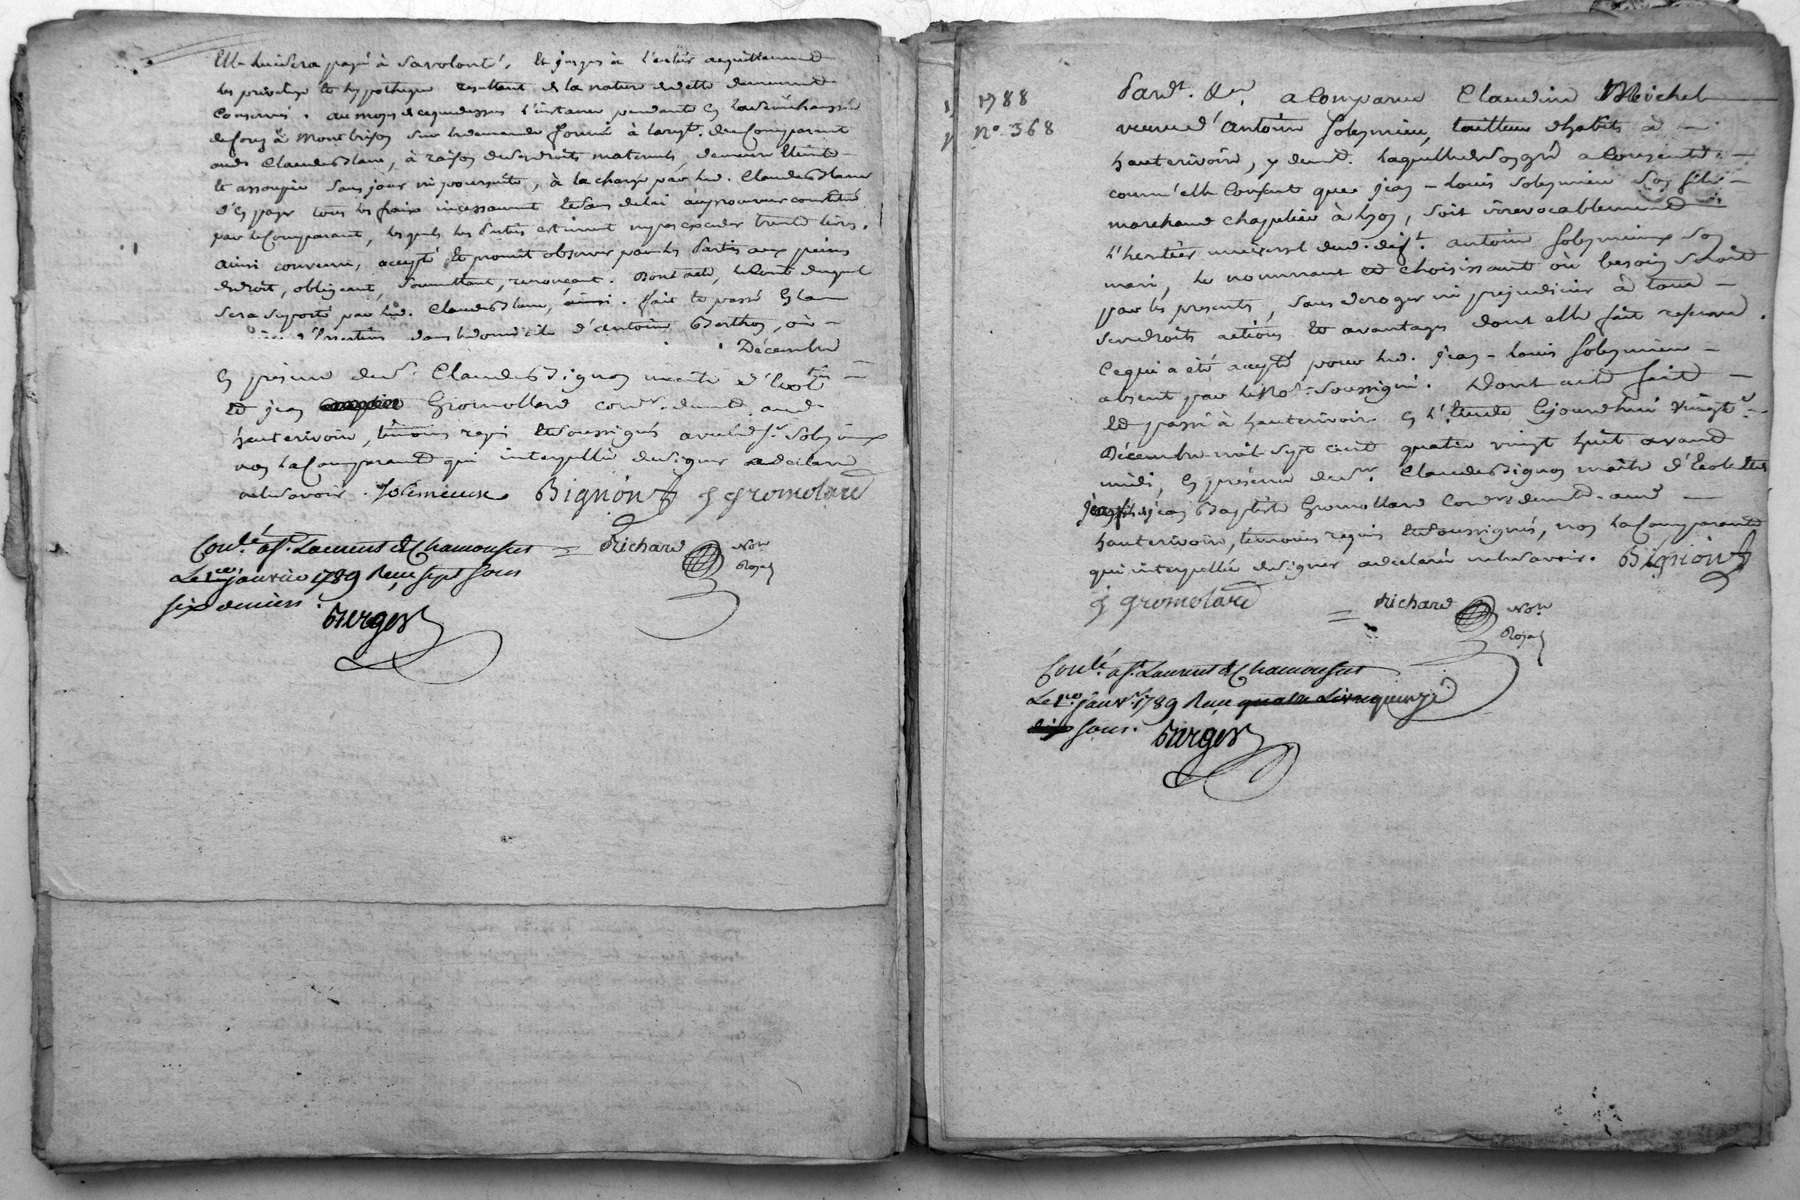 Elle lui sera payé à sa volonté, et jusques à l'entier acquittement
les privilege et hypotheque resultant de la nature de dette demeurent
conservés. au moyen de ce que dessus l'instance pendante en la sénéchaussée
de forez à Montbrison sur la demande formée à la req.te du comparant
aud. Claude Blanc, à raison de ses droits maternels, demeure éteinte
et assoupie sans jour ni poursuite, à la charge par led. Claude Blanc
d'en payer tous les frais incessament et sans delai au procureur constitué
par le Comparant, lesquels les Parties estiment ne pas exceder trente livres.
ainsi convenu, accepté et promit observer par les Parties aux peines
de droit, obligeant, soumettant, renonçant. Dont acte, le cout duquel
sera suporté par led. Claude Blanc, ainsi. fait et passé en la
dans le domicile d'antoine Berthon, où
Décembre
En présence de s.r Claude Bignon maitre d'Ecole
et jean Gromollard cord.r dem.t aud.
hauterivoire, témoins requis et soussignés avec led. s.r Solesmieux
non la Comparand qui interpellé de signer a déclaré
ne le savoir. Solemieux Bignon J Gromolard
Con.lé à S.t Laurent de Chamousset = Richard No.re
Le 1.er janvier 1789 Reçu sept sous Royal
six deniers.
Burger
1788
N.o 368
Pard.t &.a a Comparu Claudine Michel
veuve d'Antoine Solesmieu, tailleur d'habits à
hauterivoire, y dem.t. laquelle de son gré a Consenti
comm'elle Consent que jean-Louis Solesmieu son fils
marchand chapelier à Lyon, soit irrevocablement
l'heritier universel dud. def.t antoine Solesmieux son
mari, le nommant et choisissant où besoin seroit
par les presentes, sans deroger ni prejudicier à tous
ses droits actions et avantages dont elle fait reserve.
Ce qui a été accepté pour led. jean-Louis Solesmieu
absent par le No.re soussigné. Dont acte fait
et passé à hauterivoire en l'Etude cejourd'hui vingt
Décembre mil sept cent quatre vingt huit avant
midi, en présence de s.r Claude Bignon maitre d'Ecole et
jean Baptiste Gromollard Cord.r dem.t aud.
hauterivoire, témoins requis et soussignés, non la Comparante
qui interpellée de signer a déclaré ne le savoir. Bignon
J Gromolard = Richard No.re
Royal
Con.lé à S.t Laurent de Chamousset
Le 1.er janv.r 1789 Reçu quatre Livres quinze
dix sous.
Burger